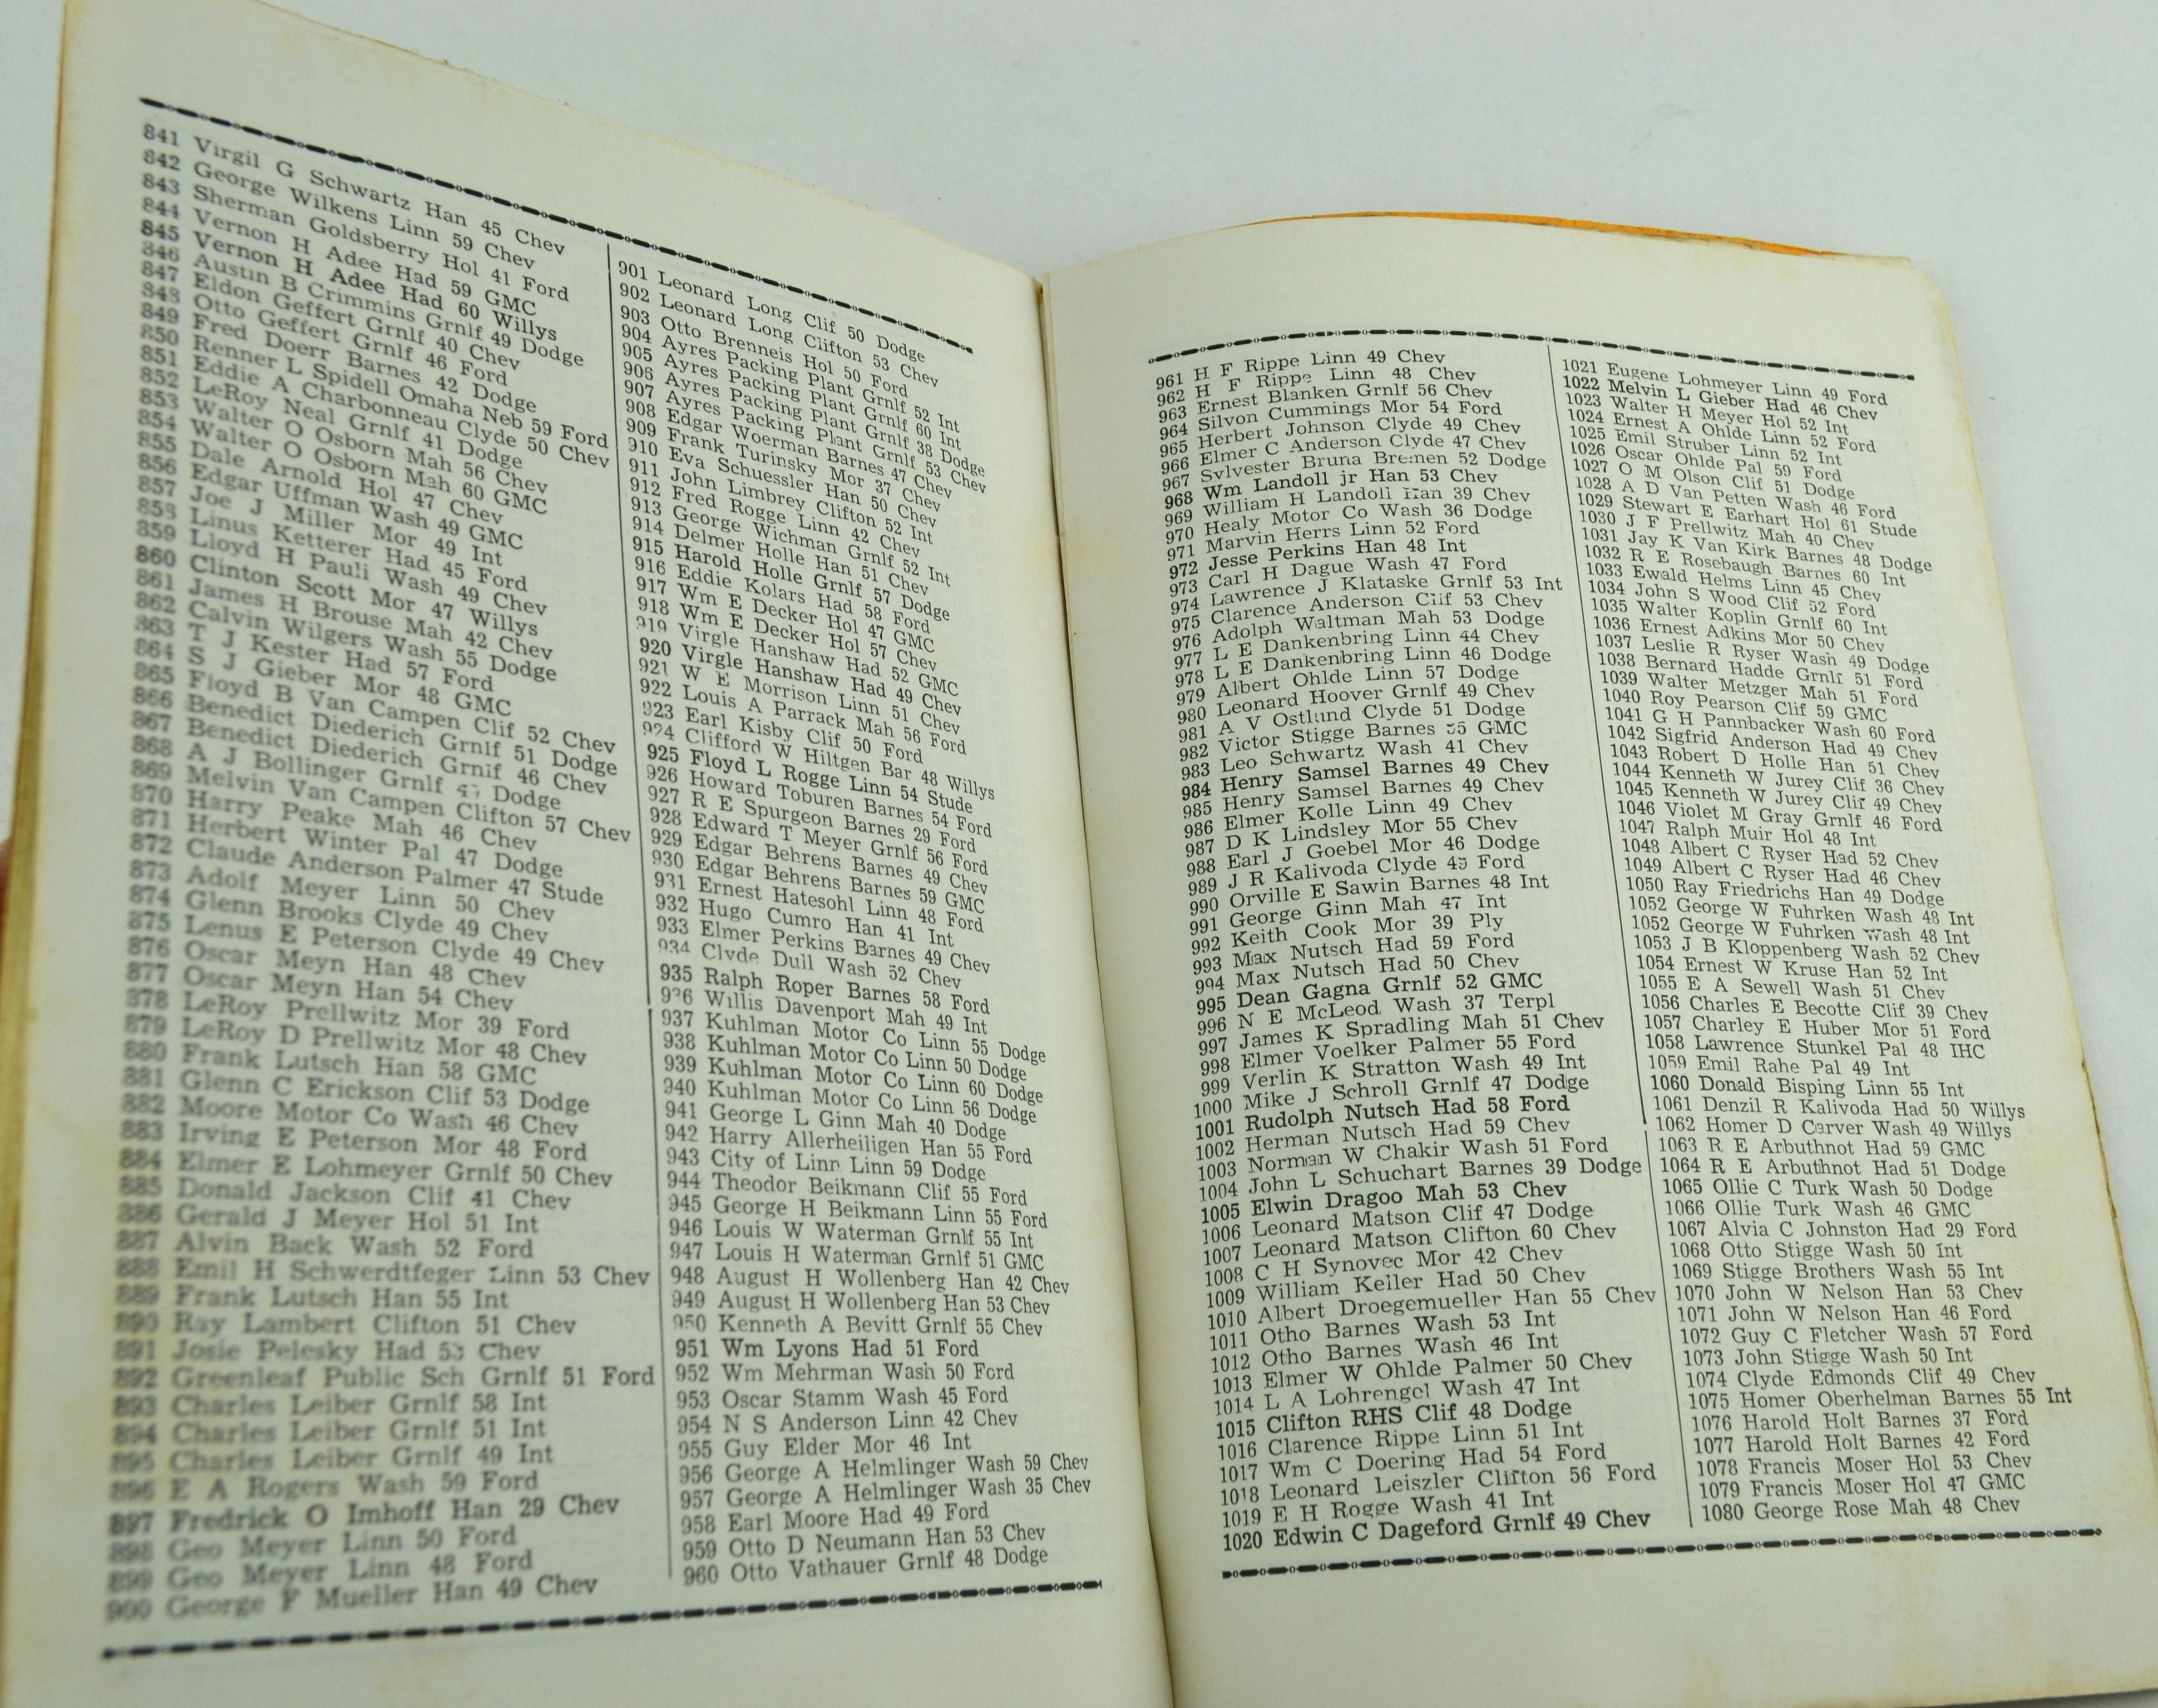 841 Virgil G Schwartz Han 45 Chev
842 George Wilkens Linn 59 Chev
843 Sherman Goldsberry Hol 41 Ford
844 Vernon H Adee Had 59 GMC
845 Vernon H Adee Had 60 Willys
846 Austin B Crimmins Grnlf 49 Dodge
847 Eldon Geffert Grnlf 40 Chev
848 Otto Geffert Grnlf 46 Ford
849 Fred Doerr Barnes 42 Dodge
850 Renner L Spidell Omaha Neb 59 Ford
851 Eddie A Charbonneau Clyde 50 Chev
852 LeRoy Neal Grnlf 41 Dodge
853 Walter O Osborn Mah 56 Chev
854 Walter O Osborn Mah 60 GMC
855 Dale Arnold Hol 47 Chev
856 Edgar Uffman Wash 49 GMC
857 Joe J Miller Mor 49 Int
858 Linus Ketterer Had 45 Ford
859 Lloyd H Pauli Wash 49 Chev
860 Clinton Scott Mor 47 Willys
861 James H Brouse Mah 42 Chev
862 Calvin Wilgers Wash 55 Dodge
863 T J Kester Had 57 Ford
864 S J Gieber Mor 48 GMC
865 Floyd B Van Campen Clif 52 Chev
866 Benedict Diederich Grnlf 51 Dodge
867 Benedict Diederich Grnlf 46 Chev
868 A J Bollinger Grnlf Dodge
869 Melvin Van Campen Clifton 57 Chev
870 Harry Peake Mah 46 Chev
871 Herbert Winter Pal 47 Dodge
872 Claude Anderson Palmer 47 Stude
873 Adolf Meyer Linn 50 Chev
874 Glenn Brooks Clyde 49 Chev
875 Lenus E Peterson Clyde 49 Chev
876 Oscar Meyn Han 48 Chev
877 Oscar Meyn Han 54 Chev
878 LeRoy Prellwitz Mor 39 Ford
879 LeRoy D Prellwitz Mor 48 Chev
880 Frank Lutsch Han 58 GMC
881 Glenn C Erickson Clif 53 Dodge
882 Moore Motor Co Wash 46 Chev
883 Irving E Peterson Mor 48 Ford
884 Elmer E Lohmeyer Grnlf 50 Chev
885 Donald Jackson Clif 41 Chev
886 Gerald J Meyer Hol 51 Int
887 Alvin Back Wash 52 Ford
888 Emil H Schwerdtfeger Linn 53 Chev
889 Frank Lutsch Han 55 Int
890 Ray Lambert Clifton 51 Chev
891 Josie Pelesky Had Chev
892 Greenleaf Public Sch Grnlf 51 Ford
893 Charles Leiber Grnlf 58 Int
894 Charles Leiber Grnlf 51 Int
895 Charles Leiber Grnlf 49 Int
896 E A Rogers Wash 59 Ford
897 Fredrick O Imhoff Han 29 Chev
898 Geo Meyer Linn 50 Ford
899 Geo Meyer Linn 48 Ford
900 George F Mueller Han 49 Chev
901 Leonard Long Clif 50 Dodge
902 Leonard Long Clifton 53 Chev
903 Otto Brenneis Hol 50 Ford
904 Ayres Packing Plant Grnlf 52 Int
905 Ayres Packing Plant Grnlf 60 Int
906 Ayres Packing Plant Grnlf 38 Dodge
907 Ayres Packing Plant Grnlf 53 Chev
908 Edgar Woerman Barnes 47 Chev
909 Frank Turinsky Mor 37 Chev
910 Eva Schuessler Han 50 Chev
911 John Limbrey Clifton 52 Int
912 Fred Rogge Linn 42 Chev
913 George Wichman Grnlf 52 Int
914 Delmer Holle Han 51 Chev
915 Harold Holle Grnlf 57 Dodge
916 Eddie Kolars Had 58 Ford
917 Wm E Decker Hol 47 GMC
918 Wm E Decker Hol 57 Chev
919 Virgle Hanshaw Had 52 GMC
920 Virgle Hanshaw Had 49 Chev
921 W E Morrison Linn 51 Chev
922 Louis A Parrack Mah 56 Ford
923 Earl Kisby Clif 50 Ford
924 Clifford W Hiltgen Bar 48 Willys
925 Floyd L Rogge Linn 54 Stude
926 Howard Toburen Barnes 54 Ford
927 R E Spurgeon Barnes 29 Ford
928 Edward T Meyer Grnlf 56 Ford
929 Edgar Behrens Barnes 49 Chev
930 Edgar Behrens Barnes 59 GMC
931 Ernest Hatesohl Linn 48 Ford
932 Hugo Cumro Han 41 Int
933 Elmer Perkins Barnes 49 Chev
934 Clyde Duil Wash 52 Chev
935 Ralph Roper Barnes 58 Ford
936 Willis Davenport Mah 49 Int
937 Kuhlman Motor Co Linn 55 Dodge
938 Kuhlman Motor Co Linn 50 Dodge
939 Kuhlman Motor Co Linn 60 Dodge
940 Kuhlman Motor Co Linn 56 Dodge
941 George L Ginn Mah 40 Dodge
942 Harry Allerheiligen Han 55 Ford
943 City of Linn Linn 59 Dodge
944 Theodor Beikmann Clif 55 Ford
945 George H Beikmann Linn 55 Ford
946 Louis W Waterman Grnlf 55 Int
947 Louis H Waterman Grnlf 51 GMC
948 August H Wollenberg Han 42 Chev
949 August H Wollenberg Han 53 Chev
950 Kenneth A Bevitt Grnlf 55 Chev
951 Wm Lyons Had 51 Ford
952 Wm Mehrman Wash 50 Ford
953 Oscar Stamm Wash 45 Ford
954 N S Anderson Linn 42 Chev
955 Guy Elder Mor 46 Int
956 George A Helmlinger Wash 59 Chev
957 George A Helmlinger Wash 35 Chev
958 Earl Moore Had 49 Ford
959 Otto D Neumann Han 53 Chev
960 Otto Vathauer Grnlf 48 Dodge
961 H F Rippe Linn 49 Chev
962 H F Rippe Linn 48 Chev
963 Ernest Blanken Grnlf 56 Chev
964 Silvon Cummings Mor 54 Ford
965 Herbert Johnson Clyde 49 Chev
966 Elmer C Anderson Clyde 47 Chev
967 Sylvester Bruna Bremen 52 Dodge
968 Wm Landoll jr Han 53 Chev
969 William H Landoll Han 39 Chev
970 Healy Motor Co Wash 36 Dodge
971 Marvin Herrs Linn 52 Ford
972 Jesse Perkins Han 48 Int
973 Carl H Dague Wash 47 Ford
974 Lawrence J Klataske Grnlf 53 Int
975 Clarence Anderson Clif 53 Chev
976 Adolph Waltman Mah 53 Dodge
977 L E Dankenbring Linn 44 Chev
978 L E Dankenbring Linn 46 Dodge
979 Albert Ohlde Linn 57 Dodge
980 Leonard Hoover Grnlf 49 Chev
981 A V Ostlund Clyde 51 Dodge
982 Victor Stigge Barnes 55 GMC
983 Leo Schwartz Wash 41 Chev
984 Henry Samsel Barnes 49 Chev
985 Henry Samsel Barnes 49 Chev
986 Elmer Kolle Linn 49 Chev
987 D K Lindsley Mor 55 Chev
988 Earl J Goebel Mor 46 Dodge
989 J R Kalivoda Clyde Ford
990 Orville E Sawin Barnes 48 Int
991 George Ginn Mah 47 Int
992 Keith Cook Mor 39 Ply
993 Max Nutsch Had 59 Ford
994 Max Nutsch Had 50 Chev
995 Dean Gagna Grnlf 52 GMC
996 N E McLeod Wash 37 Terpl
997 James K Spradling Mah 51 Chev
998 Elmer Voelker Palmer 55 Ford
999 Verlin K Stratton Wash 49 Int
1000 Mike J Schroll Grnlf 47 Dodge
1001 Rudolph Nutsch Had 58 Ford
1002 Herman Nutsch Had 59 Chev
1003 Norman W Chakir Wash 51 Ford
1004 John L Schuchart Barnes 39 Dodge
1005 Elwin Dragoo Mah 53 Chev
1006 Leonard Matson Clif 47 Dodge
1007 Leonard Matson Clifton 60 Chev
1008 C H Synovec Mor 42 Chev
1009 William Keller Had 50 Chev
1010 Albert Droegemueller Han 55 Chev
1011 Otho Barnes Wash 53 Int
1012 Otho Barnes Wash 46 Int
1013 Elmer W Ohlde Palmer 50 Chev
1014 L A Lohrengel Wash 47 Int
1015 Clifton RHS Clif 48 Dodge
1016 Clarence Rippe Linn 51 Int
1017 Wm C Doering Had 54 Ford
1018 Leonard Leiszler Clifton 56 Ford
1019 E H Rogge Wash 41 Int
1020 Edwin C Dageford Grnlf 49 Chev
1021 Eugene Lohmeyer Linn 49 Ford
1022 Melvin L Gieber Had 46 Chev
1023 Walter H Meyer Hol 52 Int
1024 Ernest A Ohlde Linn 52 Ford
1025 Emil Struber Linn 52 Int
1026 Oscar Ohlde Pal 59 Ford
1027 O M Olson Clif 51 Dodge
1028 A D Van Petten Wash 46 Ford
1029 Stewart E Earhart Hol 61 Stude
1030 J F Prellwitz Mah 40 Chev
1031 Jay K Van Kirk Barnes 48 Dodge
1032 R E Rosebaugh Barnes 60 Int
1033 Ewald Helms Linn 45 Chev
1034 John S Wood Clif 52 Ford
1035 Walter Koplin Grnlf 60 Int
1036 Ernest Adkins Mor 50 Chev
1037 Leslie R Ryser Wash 49 Dodge
1038 Bernard Hadde Grnlf 51 Ford
1039 Walter Metzger Mah 51 Ford
1040 Roy Pearson Clif 59 GMC
1041 G H Pannbacker Wash 60 Ford
1042 Sigfrid Anderson Had 49 Chev
1043 Robert D Holle Han 51 Chev
1044 Kenneth W Jurey Clif 36 Chev
1045 Kenneth W Jurey Clif 49 Chev
1046 Violet M Gray Grnlf 46 Ford
1047 Ralph Muir Hol 48 Int
1048 Albert C Ryser Had 52 Chev
1049 Albert C Ryser Had 46 Chev
1050 Ray Friedrichs Han 49 Dodge
1052 George W Fuhrken Wash 48 Int
1052 George W Fuhrken Wash 48 Int
1053 J B Kloppenberg Wash 52 Chev
1054 Ernest W Kruse Han 52 Int
1055 E A Sewell Wash 51 Chev
1056 Charles E Becotte Clif 39 Chev
1057 Charley E Huber Mor 51 Ford
1058 Lawrence Stunkel Pal 48 IHC
1059 Emil Rahe Pal 49 Int
1060 Donald Bisping Linn 55 Int
1061 Denzil R Kalivoda Had 50 Willys
1062 Homer D Carver Wash 49 Willys
1063 R E Arbuthnot Had 59 GMC
1064 R E Arbuthnot Had 51 Dodge
1065 Ollie C Turk Wash 50 Dodge
1066 Ollie Turk Wash 46 GMC
1067 Alvia C Johnston Had 29 Ford
1068 Otto Stigge Wash 50 Int
1069 Stigge Brothers Wash 55 Int
1070 John W Nelson Han 53 Chev
1071 John W Nelson Han 46 Ford
1072 Guy C Fletcher Wash 57 Ford
1073 John Stigge Wash 50 Int
1074 Clyde Edmonds Clif 49 Chev
1075 Homer Oberhelman Barnes 55 Int
1076 Harold Holt Barnes 37 Ford
1077 Harold Holt Barnes 42 Ford
1078 Francis Moser Hol 53 Chev
1079 Francis Moser Hol 47 GMC
1080 George Rose Mah 48 Chev